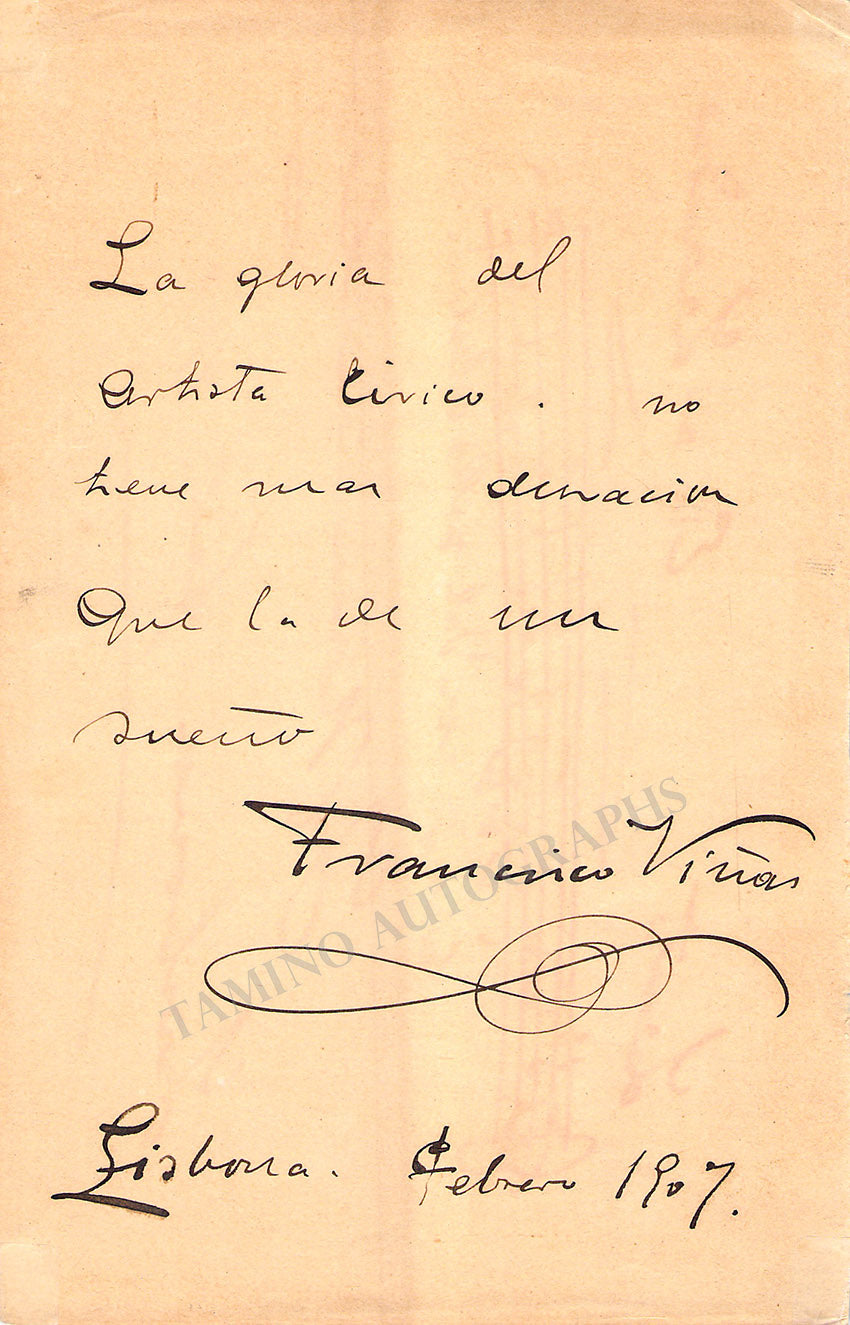 La gloria del
artista lirico . no
tiene mas duracion
que la de un
sueño
Francisco Viñas
TAMINO AUTOGRAPHS
Lisbona. Febrero 1907.